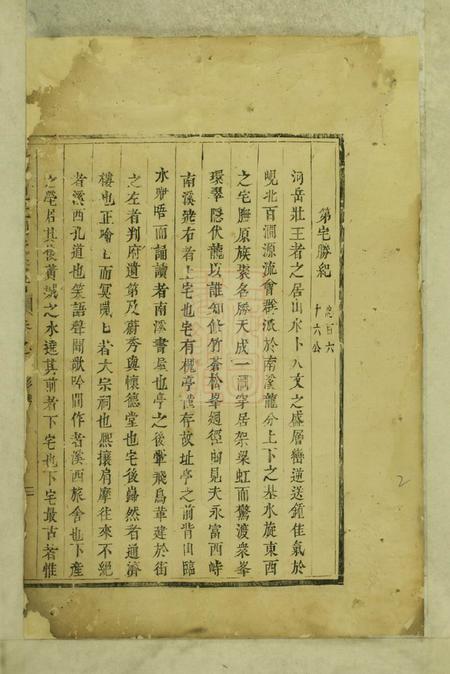 第宅勝紀 總百六十六公
河岳壯王者之居山水卜人文之盛層巒遞送鍾佳氣於
峴北百澗源流會群派於南溪龍分上下之基水旋東西
之宅膴原族聚名勝天成一澗穿居架梁虹而驚渡衆峯
環翠隱伏龍以誰知修竹蒼松峯迴徑曲見夫永富西峙
南溪繞右者上宅也宅有槐亭舊存故址亭之前背山臨
水晤而誦讀者南溪書屋也亭之後翬飛鳥革建於街
之左者判府遺第及蔚秀與懷德堂也宅後巋然者通濟
樓也正噲噲而冥噦噦者大宗祠也熙攘肩摩往來不絕
者溪西孔道也笑語聲聞歌吟間作者溪西旅舍也下產
之塋居其後黃城之水遶其前者下宅也下宅最古者惟
2